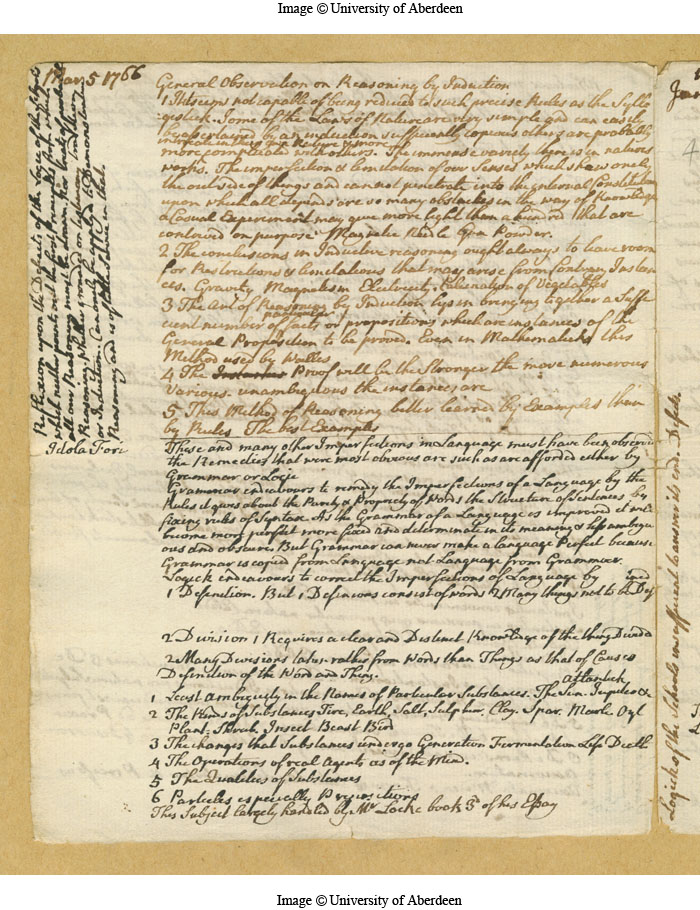 Image © University of Aberdeen
Mar 5 1766
General Observation on Reasoning by Induction
1 This is not capable of being reduced to such precise Rules as the Syllo
gistick. Some of the Laws of Nature are very simple and can easily
be ascertained by an induction sufficiently copious others are probably
intricate in their own Nature & more
more complicated with others. The immense variety there is in natures
works. The imperfection & limitation of our Senses which shew onely
the outside of things and cannot penetrate into the internal Constitution
upon which all depends are so many obstacles in the way of Knowledge
a Casual Experiment may give more light then a hundred that are
contrived on purpose Magnetic Needle Gun Powder.
2 The conclusions in Inductive reasoning ought always to leave room
for Restrictions & limitations that may arise from Contrary Instan
ces. Gravity Magnetism Electricity, of Vegetables
3 The Art of Reasoning by Induction lys in bringing together a Suffi
cient number of particular facts or propositions which are instances of the
General Proposition to be proved. Even in Mathematicks this
Method used by Wallis
4 The Instances Proof will be the Stronger the more numerous
Various. unambiguous the instances are
5 This Method of Reasoning better learned by Examples then
by Rules. The best Examples
Reflexion upon the Defects of the Logic of the Schools
which neither points out the first principles from which
all our Reasoning must be drawn, nor treats of
Reasoning whether grounded on testimony
or Induction. Can onely be applyed to Demonstrative
Reasoning and is of little service in that.
Idola Fori
These and many other Imperfections in Language must have been observed
the Remedies that were most obvious are such as are afforded either by
Grammar or Logic
Grammar endeavours to remedy the Imperfections of a Language by the
Rules it gives about the Purity & Propriety of Words the Structure of Sentences by
fixing rules of Syntax. As the Grammar of a Language is improved it will
become more perfect more fixed and determinate in its meaning & less ambigu
ous and obscure. But Grammar can never make a language Perfect because
Grammar is copied from Language not Language from Grammar.
Logick endeavours to correct the Imperfections of Language by
1 Definition. But 1 Definitions consist of words 2 Many things not to be Defined
2 Division 1 Requires a clear and Distinct Knowledge of the thing Divided
2 Many Divisions taken rather from Words than Things as that of Causes
Definition of the Word and Thing.
1 Least Ambiguity in the Names of Particular Substances. The Sun. Jupiter &c
2 The Kinds of Substances Fire, Earth, Salt, Sulphur, Clay. Spar. Marle Oyl
Plant. Shrub, Insect Beast Bird
3 The changes that Substances undergo Generation Fermentation Life Death
4 The Operations of real Agents as of the Mind.
5 The Qualities of Substances
6 Particles especially Prepositions
This Subject largely handled by Mr Locke book 3d of his Essay
Logick of the Schools insufficient to answer its end. Defects
Image © University of Aberdeen